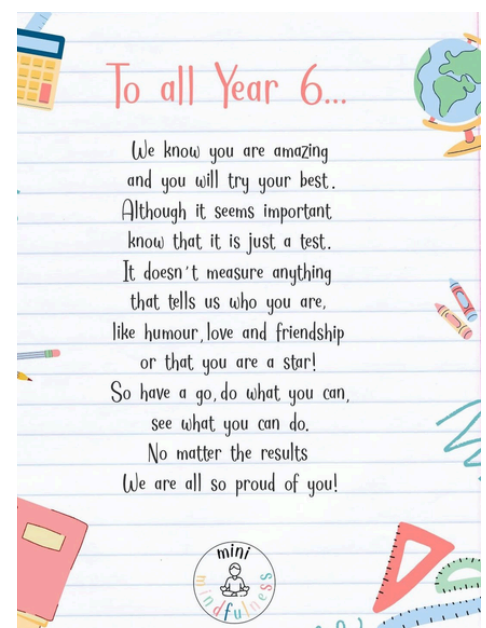 To all Year 6...
We know you are amazing
and you will try your best.
Although it seems important
know that it is just a test.
It doesn't measure anything
that tells us who you are,
like humour, love and friendship
or that you are a star!
So have a go, do what you can,
see what you can do.
No matter the results
We are all so proud of you!
mini
mindfulness